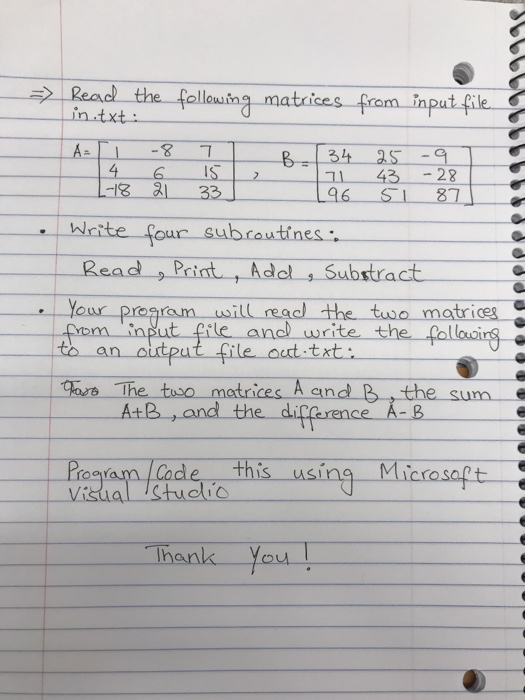 ⇒ Read the following matrices from input file
in.txt:
A = [ 1 -8 7
4 6 15
-18 21 33 ] , B = [ 34 25 -9
71 43 -28
96 51 87 ]
• Write four subroutines:
Read, Print, Add, Substract
• Your program will read the two matrices
from input file and write the following
to an output file out.txt:
The two matrices A and B, the sum
A+B, and the difference A-B
Program/Code this using Microsoft
Visual Studio
Thank You!